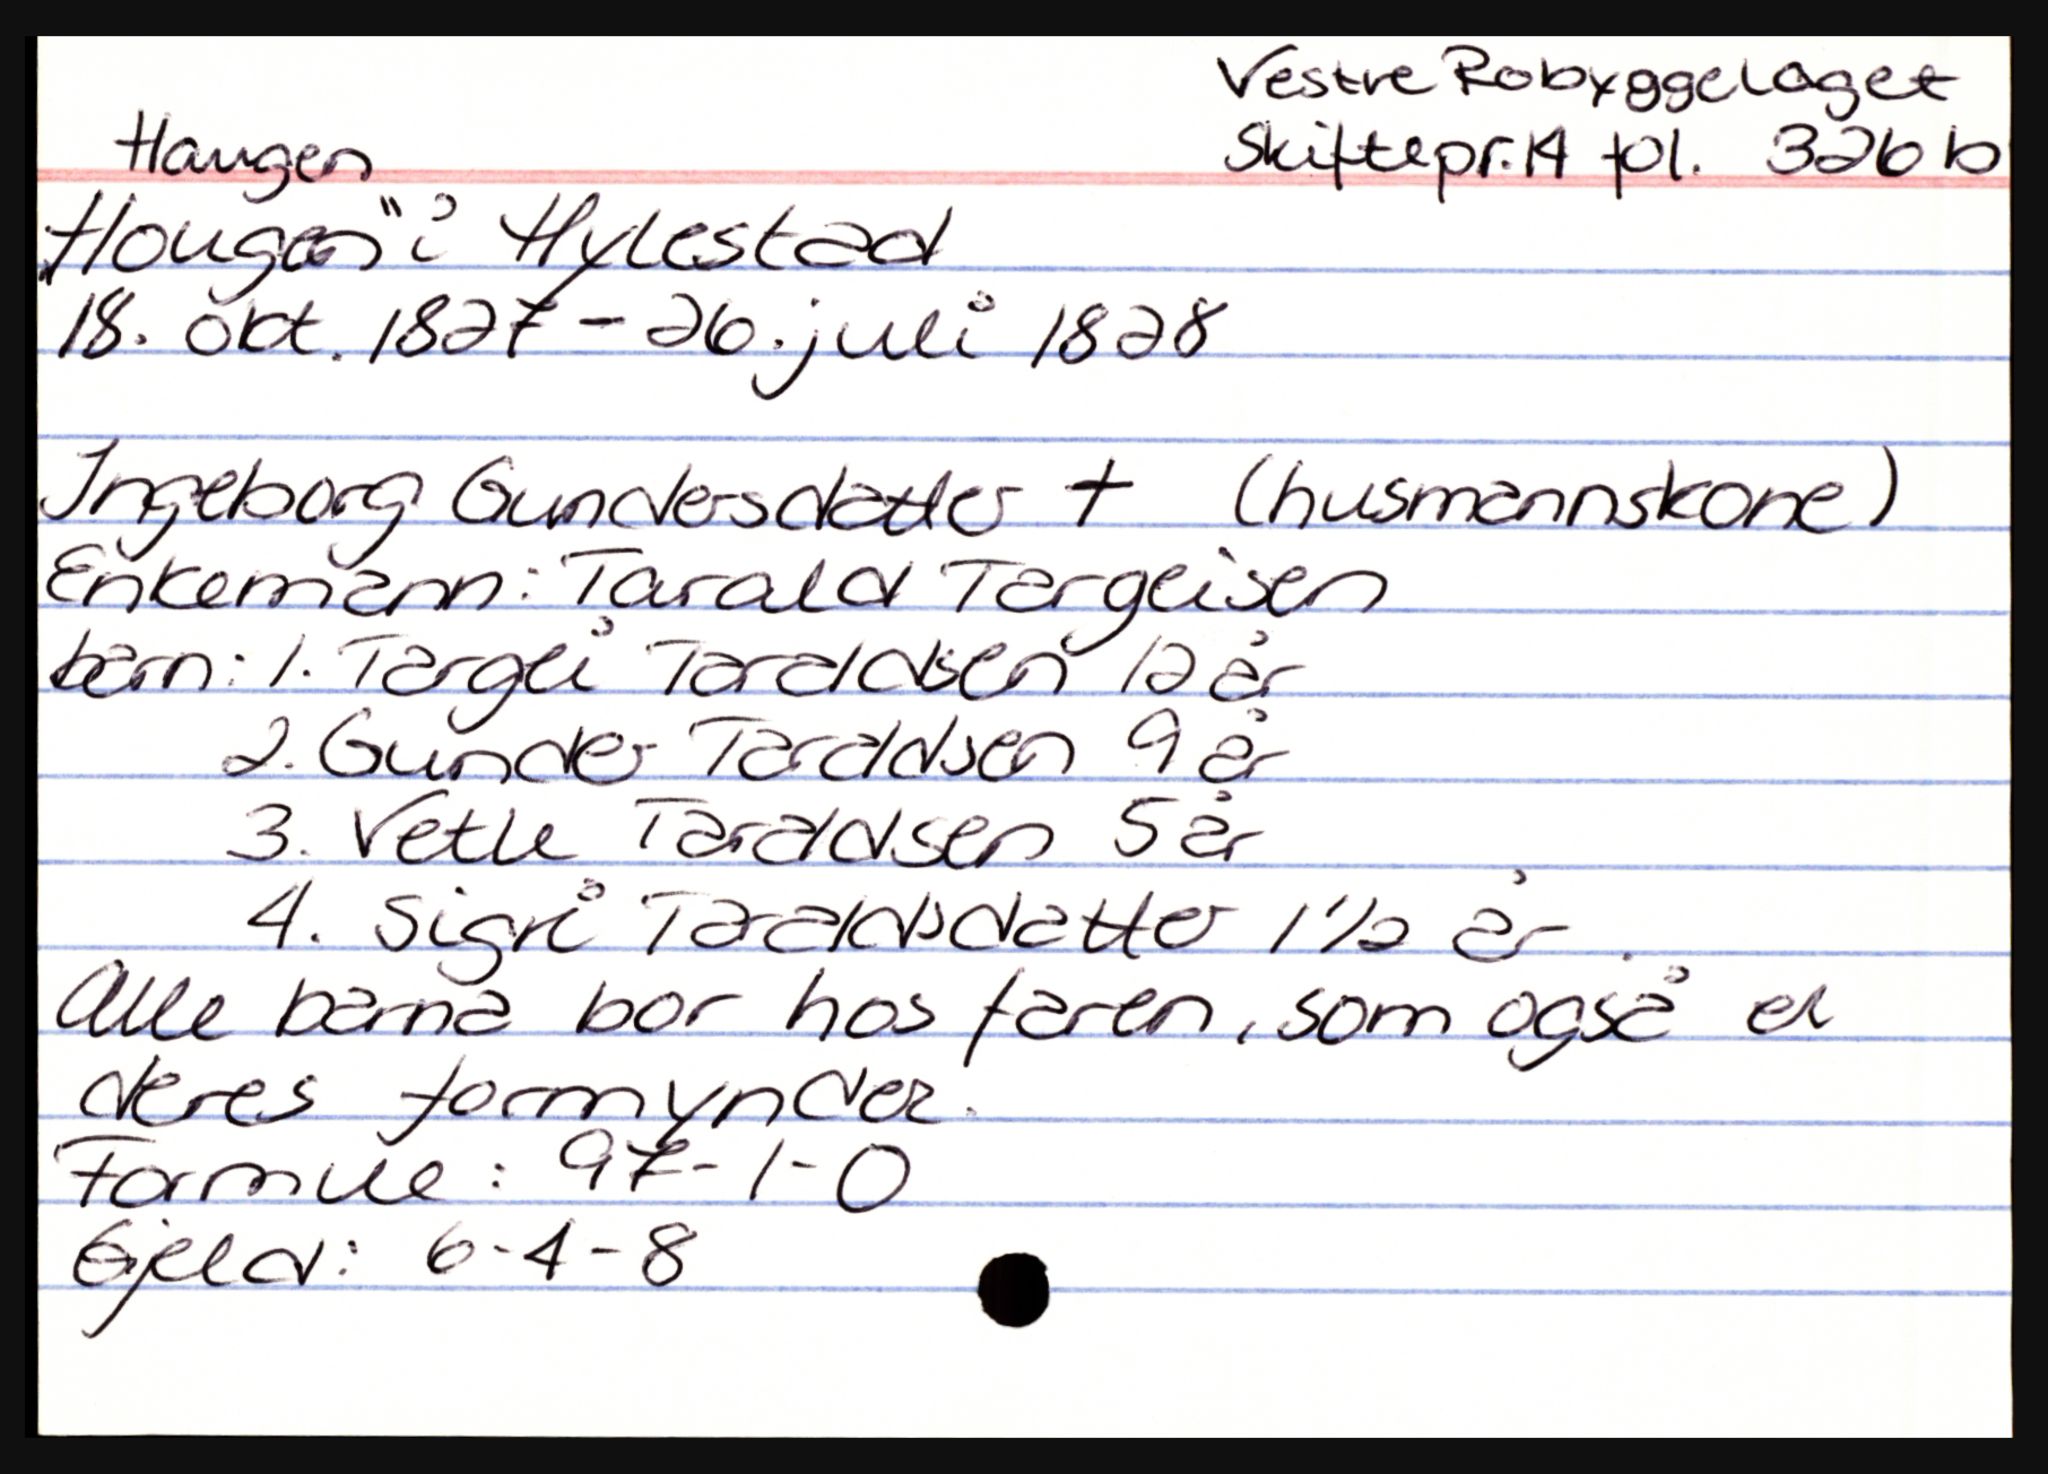 Vestre Robyggelaget
Haugen Skiftepr. 14 fol. 326 b
"Hougen" i Hylestad
18. okt. 1827 - 26. juli 1828
Ingeborg Gundersdatter + (husmannskone)
Enkemann: Tarald Targeisen
barn: 1. Targei Taraldsen 12 år
2. Gunder Taraldsen 9 år
3. Vetle Taraldsen 5 år
4. Sigri Taraldsdatter 1 1/2 år.
Alle barna bor hos faren, som også er
deres formynder.
Formue: 97-1-0
Gjeld: 6-4-8